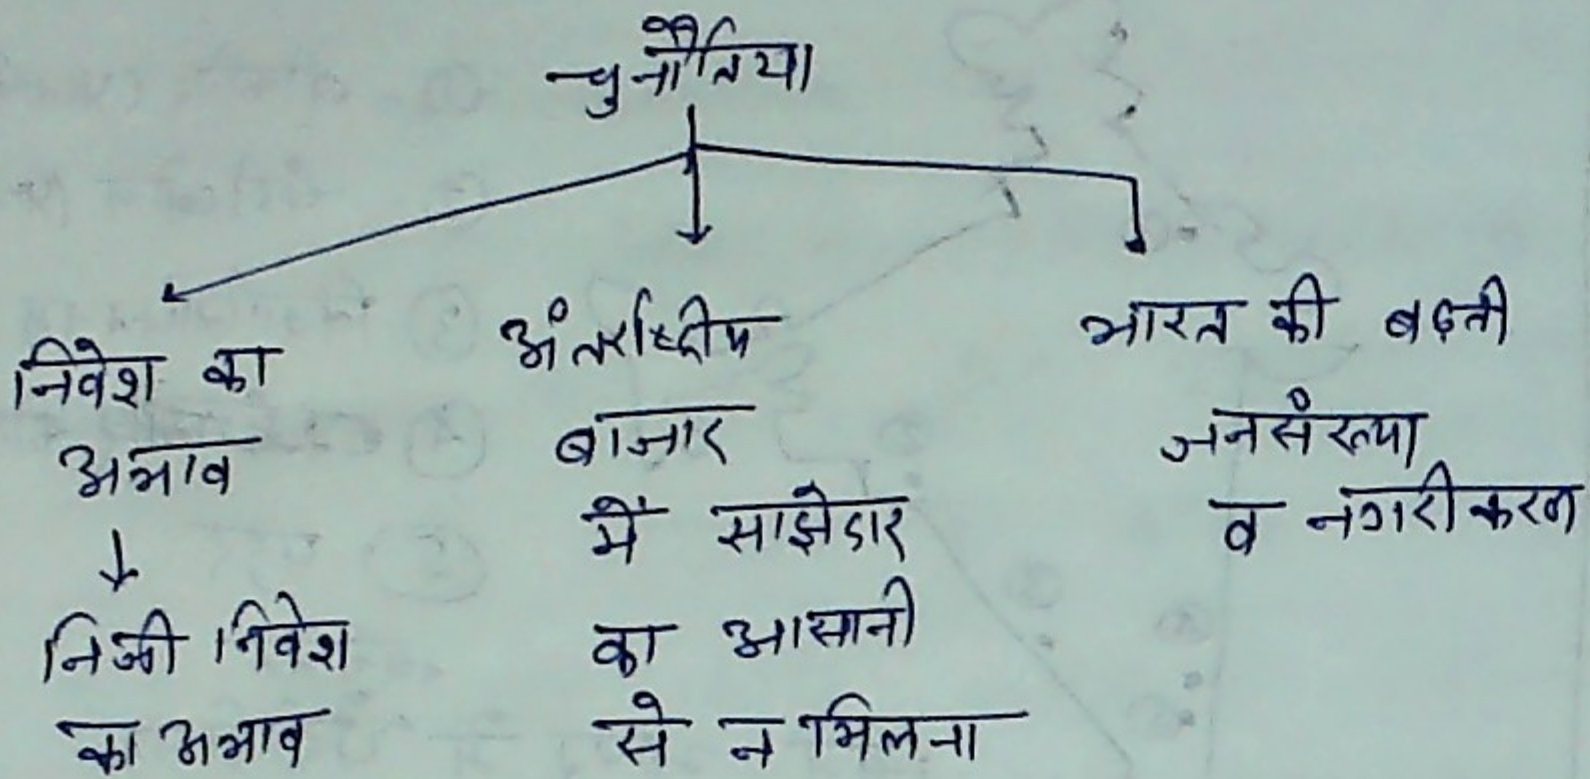 चुनौतिया
निवेश का
अभाव
निजी निवेश
का अभाव
अंतर्राष्ट्रीय
बाजार
में साझेदार
का आसानी
से न मिलना
भारत की बढ़ती
जनसंख्या
व नगरीकरण